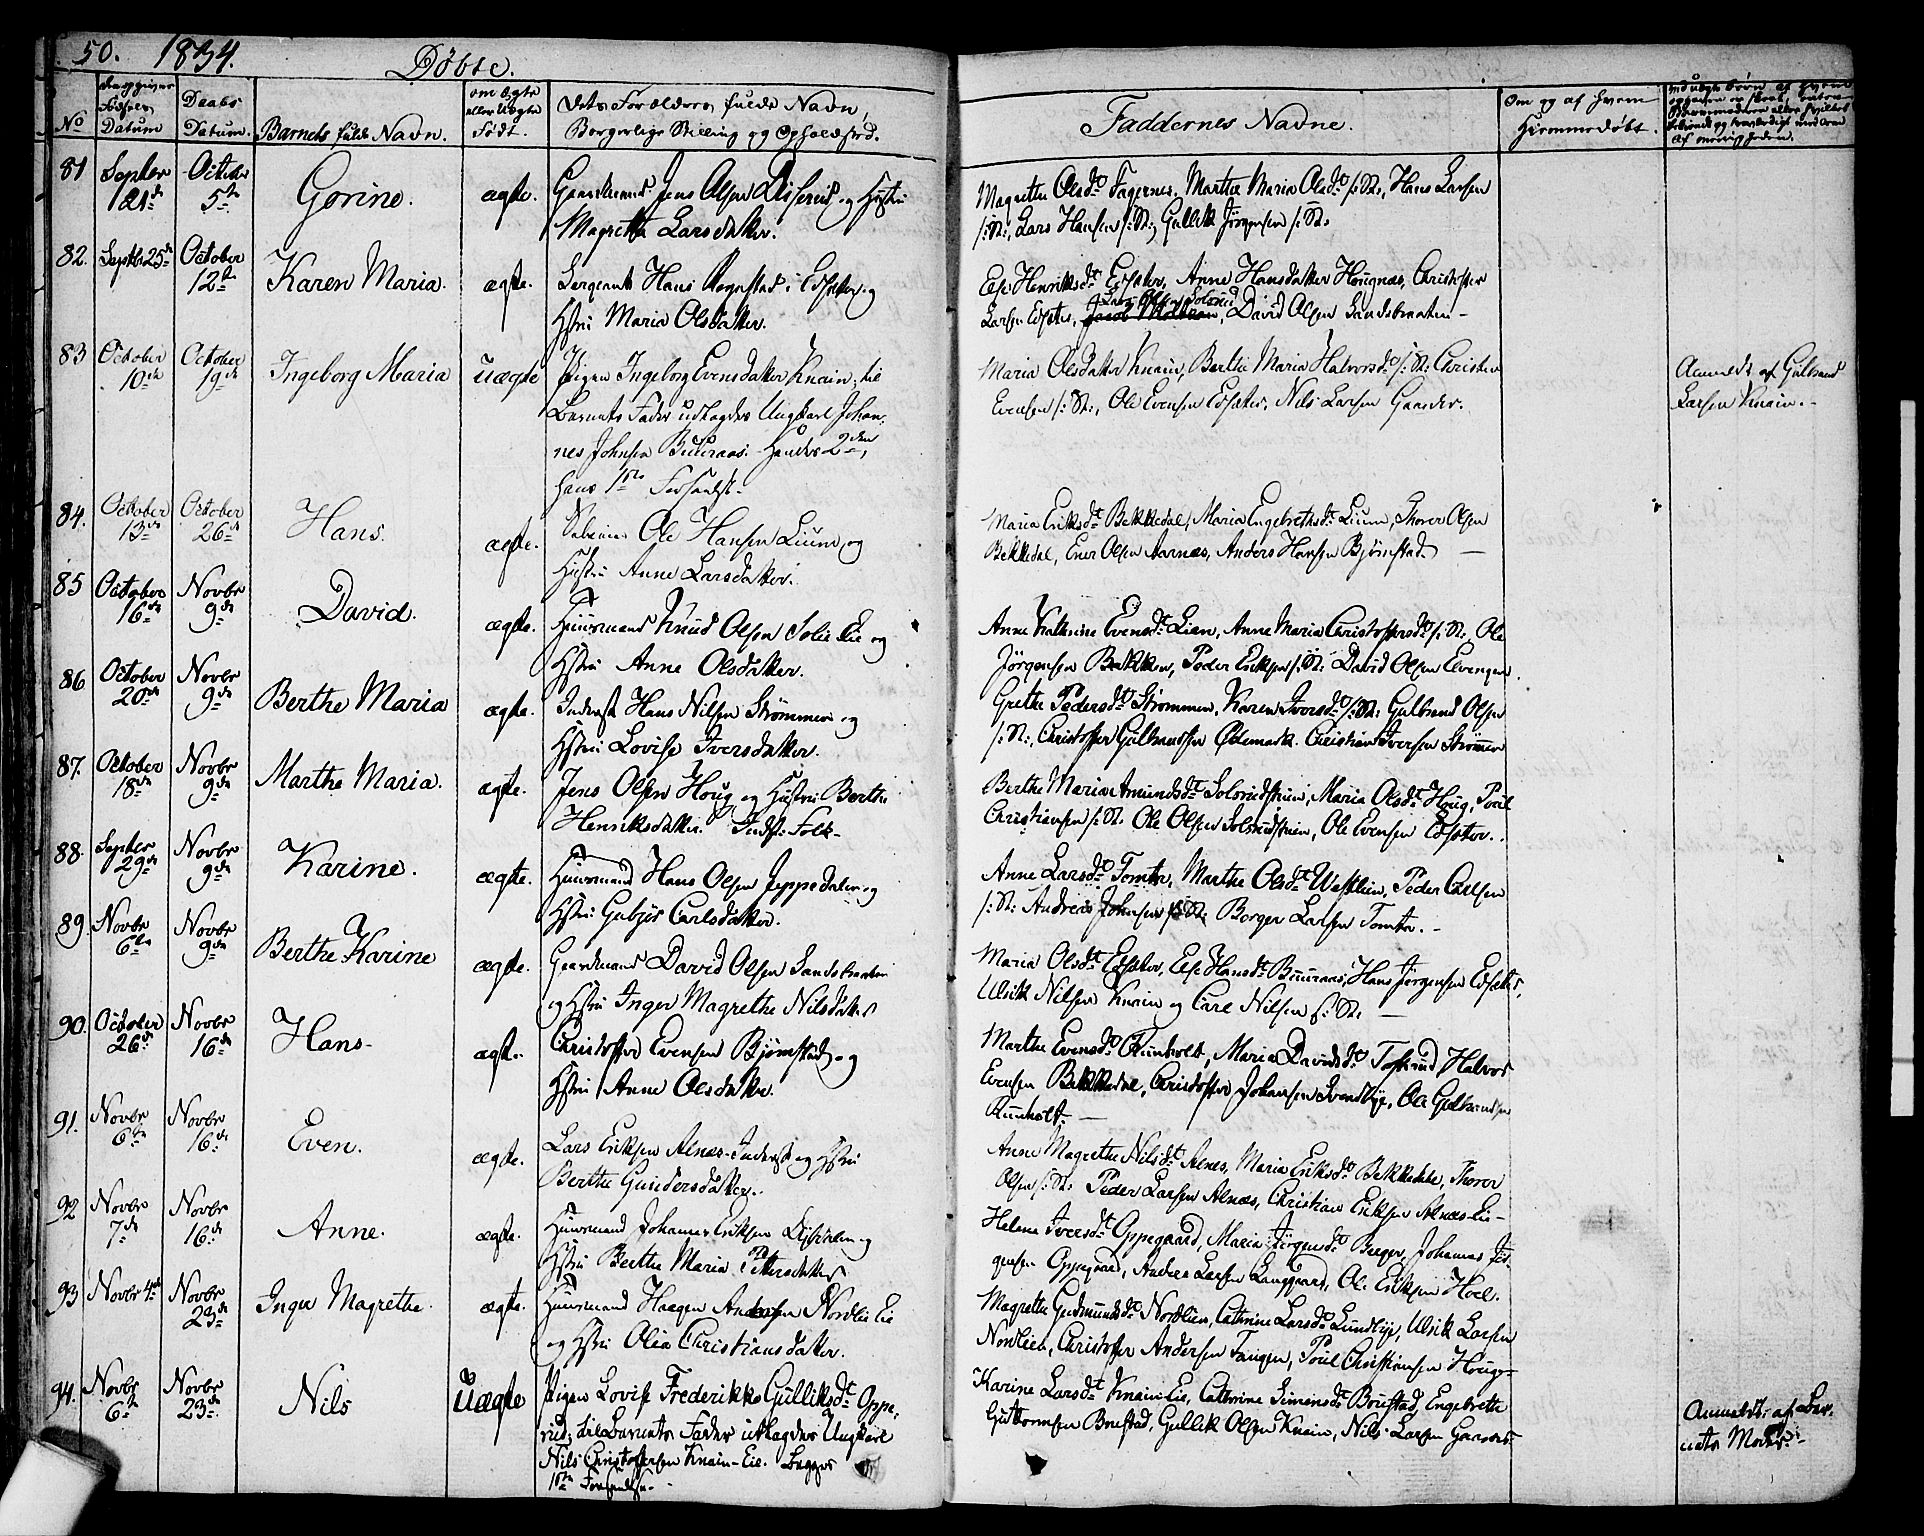 50. 1834.
Döbte.
No
Datum
Daabs
Datum.
Barnets fulde Navn.
om Ægte
eller Uægte
Født.
deres Forældres fulde Navn,
Borgerlige Stilling og Opholdssted.
Faddernes Navne.
Om og af hvem
Hjemmedøbt.
81 Septbr 21de October 5te Gorine. ægte. Gaardmand Jens Olsen og Hustru
Magrethe Larsdatter.
Magrethe Olsdt Fagernes, Marthe Maria Olsdt /: St:, Hans Larsen
/: St:, Lars Hansen /: St:, Gullik Jörgensen /: St:
82. Septbr 25de October 12te Karen Maria. ægte. Sergeant Hans i Edsæter og
Hstru Maria Olsdatter.
Else Henriksdt Edsæter, Anne Hansdatter Hougnæs, Christoffer
Larsen Edsæter, David Olsen Sandsbraaten –
83 October 10de October 19de Ingeborg Maria uægte Pigen Ingeborg Evensdatter Knain, til
Barnets Fader udlagdes Ungkarl Johan-
nes Johnsen Buuraas. Hendes 2den,
hans 1ste Forseelse.
Maria Olsdatter Knain, Berthe Maria Halvorsdt /: St: Christen
Evensen /: St:, Ole Evensen Edsæter, Nils Larsen Gaarder.
Anmeldt af Gulbrand
Larsen Knain. –
84. October 13de October 26de Hans. ægte. Ole Hansen Liiane og
Hustru Anne Larsdatter.
Maria Eriksdt Bekkedal, Maria Engebrethsdt Thorer Olsen
Bekkedal, Ener Olsen Aarnæs, Anders Hansen Bjørnstad. —
85 October 16de Novbr 9de David. ægte. Huusmand Knud Olsen Solie Eie og
Hstru Anne Olsdatter.
Anne Kathrine Evensdt Lien, Anne Maria Christoffersdt /: St:, Ole
Jörgensen Bekken, Peder Eriksen /: St: David Olsen Elvengen.
86 October 20de Novbr 9de Berthe Maria ægte. Inderst Hans Nilsen Strømmen og
Hstru Lovise Iversdatter.
Grethe Pedersdt Strømmen, Karen Iversdt /: St: Gulbrand Olsen
/: St:, Christoffer Gulbrandsen Ødemark. Christian Iversen Strømmen
87. October 18de Novbr 9de Marthe Maria. ægte. Jens Olsen Houg og Hustru Berthe
Henriksdatter. Indst: Folk –
Berthe Maria Amundsdt Maria Olsdt Houg, Poul
Christiansen /: St: Ole Olsen Ole Evensen Edsæter.
88. Septbr 29de Novbr 9de Karine. ægte. Huusmand Hans Olsen Jeppedalen og
Hstru Gubjör Carlsdatter.
Anne Larsdt Tomter, Marthe Olsdt Westlien, Peder Carlsen
/: St: Andreas Johnsen /: St: Borger Larsen Tomter. –
89. Novbr 6te Novbr 9de Berthe Karine ægte. Gaardmand David Olsen Sandsbraaten
og Hstru Inger Magrethe Nilsdatter
Maria Olsdt Edsæter, Else Hansdt Buuraas, Hans Jörgensen Edsæter,
Ulrik Nilsen Knain og Carl Nilsen /: St: —
90. October 26de Novbr 16de Hans – ægte. Christoffer Evensen Bjørnstad og
Hstru Anne Olsdatter.
Marthe Evensdt Runholt, Maria Davidsdt Halvor
Evensen Bekkedal, Christoffer Johansen Ole Gulbrandsen
Runholt. —
91. Novbr 6te Novbr 16de Even. ægte. Lars Eriksen Alnæs Inderst og Hstru
Berthe Gundersdatter.
Anne Magrethe Nilsdt Alnæs, Maria Eriksdt Thorer
Olsen /: St: Peder Larsen Alnæs, Christian Eriksen Alnæs Eie –
92 Novbr 7de Novbr 16de Anne. ægte. Huusmand Johannes Eriksen og
Hstru Berthe Maria Pettersdatter
Helene Iversdt Oppegaard, Maria Jörgensdt Berger, Johannes Jör-
gensen Oppegaard, Andreas Larsen Langgaard, Ole Eriksen Hoel.
93 Novbr 4de Novbr 23de Inger Magrethe. ægte. Huusmand Haagen Andersen Nordlie Eie
og Hstru Olea Christiansdatter.
Magrethe Gudmundsdt Nordlien, Cathrine Larsdt Lundbye, Ulrik Larsen
Nordlien, Christoffer Andersen Tangen, Poul Christiansen Houg –
94. Novbr 6te Novbr 23de Nils Uægte Pigen Lovise Frederikke Gulliksdt Oppe-
rud, til Barnets Fader udlagdes Ungkarl
Nils Christoffersen Knain-Eie. Begges
1ste Forseelse. –
Karine Larsdt Knain Eie, Cathrine Simensdt Boustad, Engebrett
Guttormsen Boustad, Gullik Olsen Knain, Nils Larsen Gaarder
Anmeldt af Bar-
nets Moder. –